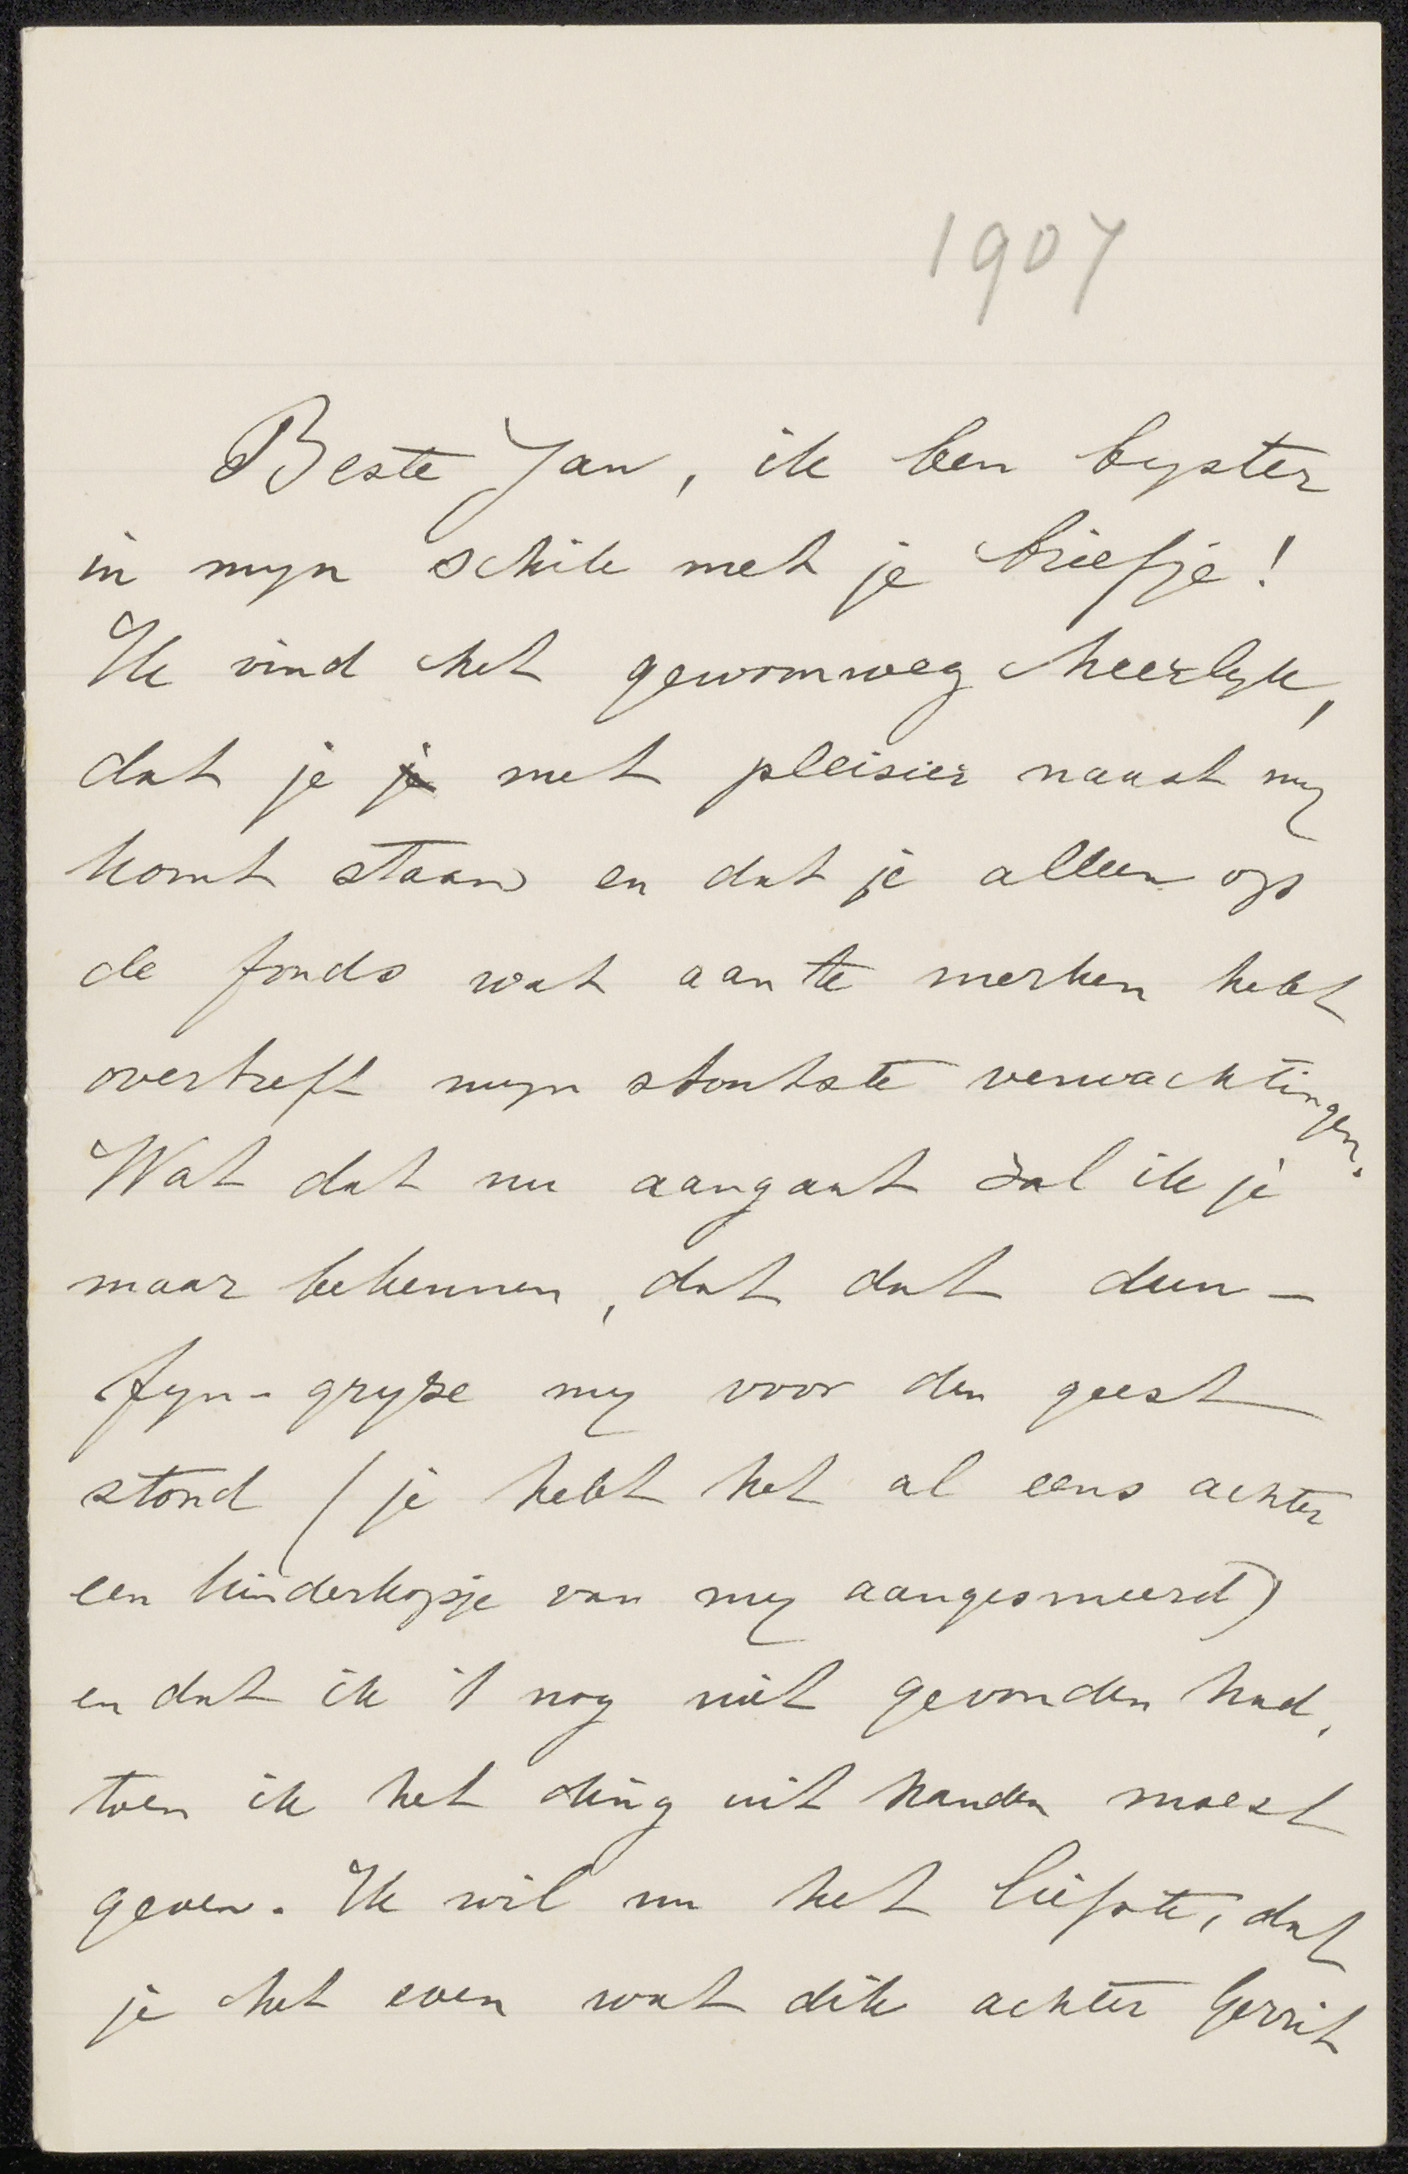 1907
Beste Jan, ik ben byster
in myn schik met je briefje!
Ik vind het gewoonweg heerlyk,
dat je je met pleisier naast my
komt staan en dat je alleen op
de fonds wat aan te merken hebt
overtreft myn stoutste verwachtingen.
Wat dat nu aangaat zal ik je
maar bekennen, dat dat dun-
fyn-gryze my voor den geest
stond (je hebt het al eens achter
een kinderkopje van my aangesmeerd)
en dat ik 't nog niet gevonden had,
toen ik het ding uit handen moest
geven. Ik wil nu het liefste, dat
je het even wat dik achter Gerrit